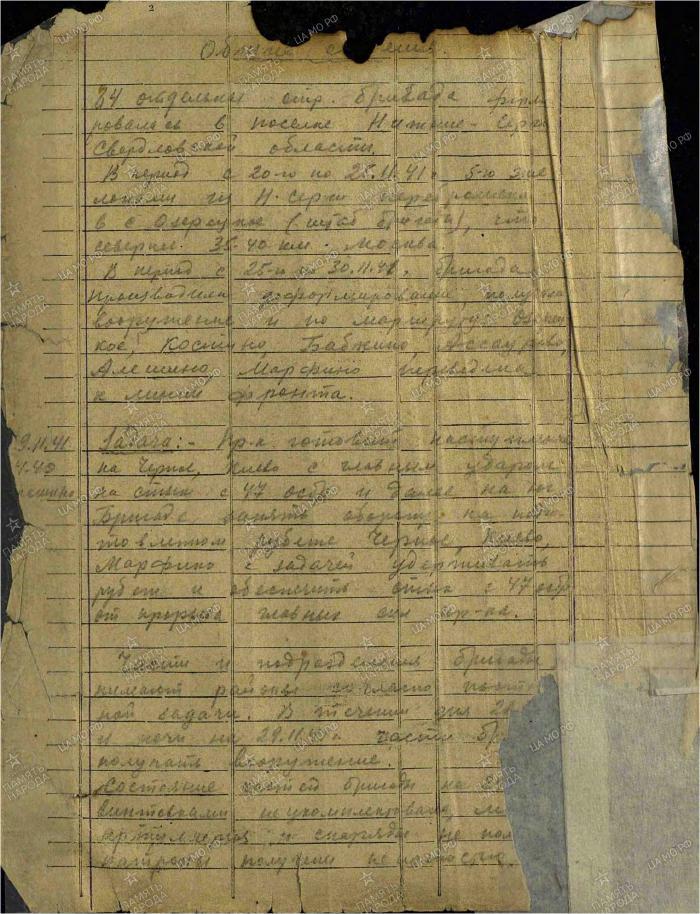 2
Общие сведения.
24 отдельная стр. бригада форми
ровалась в поселке Нижние-Серги
Свердловской области.
В период с 20-го по 25.11.41г. 5-ю эше
лонами из Н-Серги переброшена
в с Озерецкое (штаб бригады), что
севернее 35-40 км. Москва.
В период с 25-го по 30.11.41г. бригада
производила доформирование получала
вооружение и по маршруту: Озерец
кое, Космино, Бабкино,
Алешино, Марфино переведена
к линии фронта.
9.11.41 Задача:- Пр-к готовит наступление
4.40 на Черное, Киево с главным ударом
на стык с 47 осбр и далее на юг.
Бригаде занять оборону на подго
товленном рубеже Черное, Киево,
Марфино с задачей удерживать
рубеж и обеспечить стык с 47 осбр
от прорыва главных сил пр-ка.
Части и подразделения бригады
нимают районы согласно постав
ной задачи. В течении дня 28
и ночи на 29.11.41г. части бр
получать вооружение.
Состояние частей бригады на
винтовками не укомплектованы,
артиллерия и снаряды не пол
патроны получены не полностью.
ПАМЯТЬ НАРОДА
ЦА МО РФ